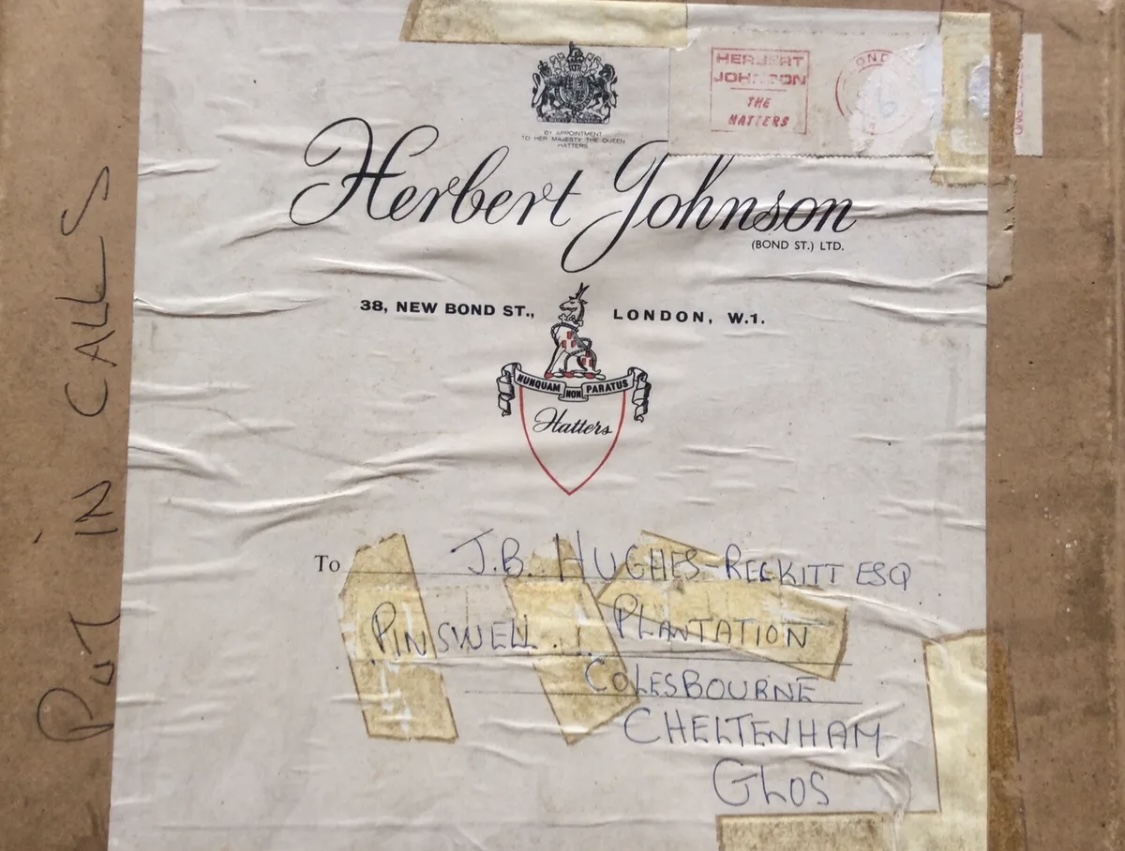 BY APPOINTMENT
TO HER MAJESTY THE QUEEN
HATTERS
HERBERT
JOHNSON
THE
HATTERS
OND
Herbert Johnson
(BOND ST.) LTD.
38, NEW BOND ST., LONDON, W.1.
NUNQUAM NON PARATUS
Hatters
To J.B. HUGHES-RECKITT ESQ
PINSWELL PLANTATION
COLESBOURNE
CHELTENHAM
GLOS
PUT IN CALLS